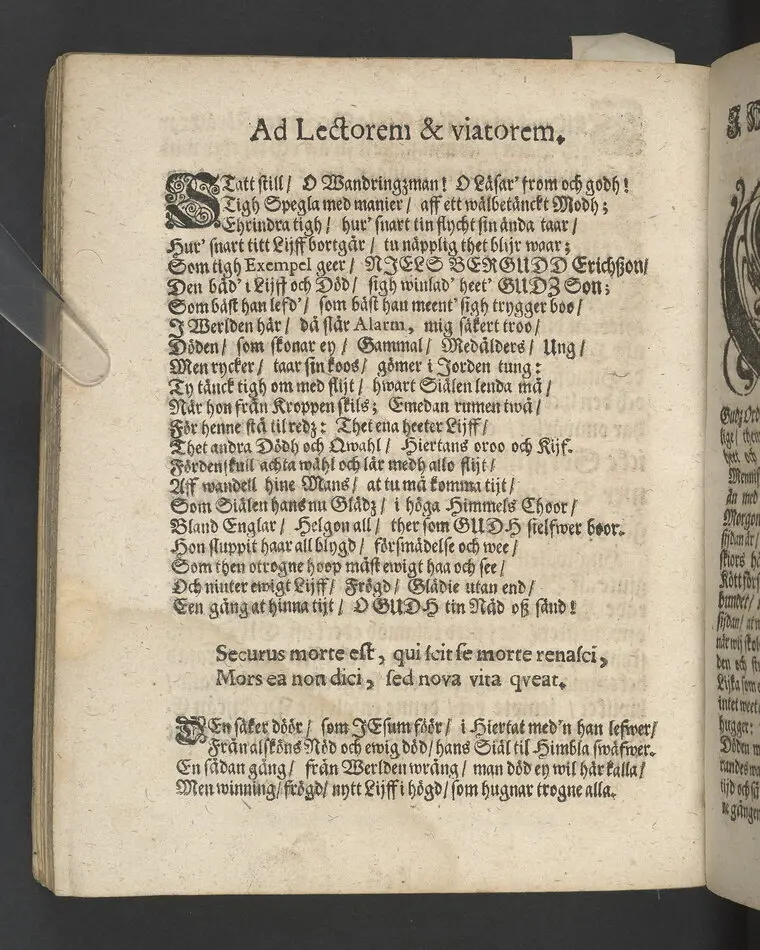 Ad Lectorem & viatorem.
STatt still/ O Wandringzman! O Läsar' from och godh!
Tigh Spegla med manier/ aff ett wälbetänckt Modh;
Ehrindra tigh/ hur' snart tin flycht sin ända taar/
Hur' snart titt Lijff bortgår/ tu näpplig thet blijr waar;
Som tigh Exempel geer/ NIELS BERGUDD Erichßon/
Den båd' i Lijff och Död/ sigh winlad' heet' GUDZ Son;
Som bäst han lefd'/ som bäst han meent' sigh trygger boo/
I Werlden här/ då slår Alarm, mig säkert troo/
Döden/ som skonar ey/ Gammal/ Medålders/ Ung/
Men rycker/ taar sin koos/ gömer i Jorden tung:
Ty tänck tigh om med flijt/ hwart Siälen lenda må/
När hon från Kroppen skils; Emedan rumen twå/
För henne stå til redz: Thet ena heeter Lijff/
Thet andra Dödh och Qwahl/ Hiertans oroo och Kijf.
Fördenskull achta wähl och lär medh allo flijt/
Aff wandell hine Mans/ at tu må komma tijt/
Som Siälen hans nu Glädz/ i höga Himmels Choor/
Bland Englar/ Helgon all/ ther som GUDH sielfwer boor.
Hon sluppit haar all blygd/ försmädelse och wee/
Som then otrogne hoop mäst ewigt haa och see/
Och niuter ewigt Lijff/ Frögd/ Glädie utan end/
Een gång at hinna tijt/ O GUDH tin Nåd oß sänd!
Securus morte est, qui scit se morte renasci,
Mors ea non dici, sed nova vita qveat.
DEn säker döör/ som JEsum föör/ i Hiertat med'n han lefwer/
Från alsköns Nöd och ewig död/ hans Siäl til Himbla swäfwer.
En sådan gång/ från Werlden wrång/ man död ey wil här kalla/
Men winning/ frögd/ nytt Lijff i högd/ som hugnar trogne alla.